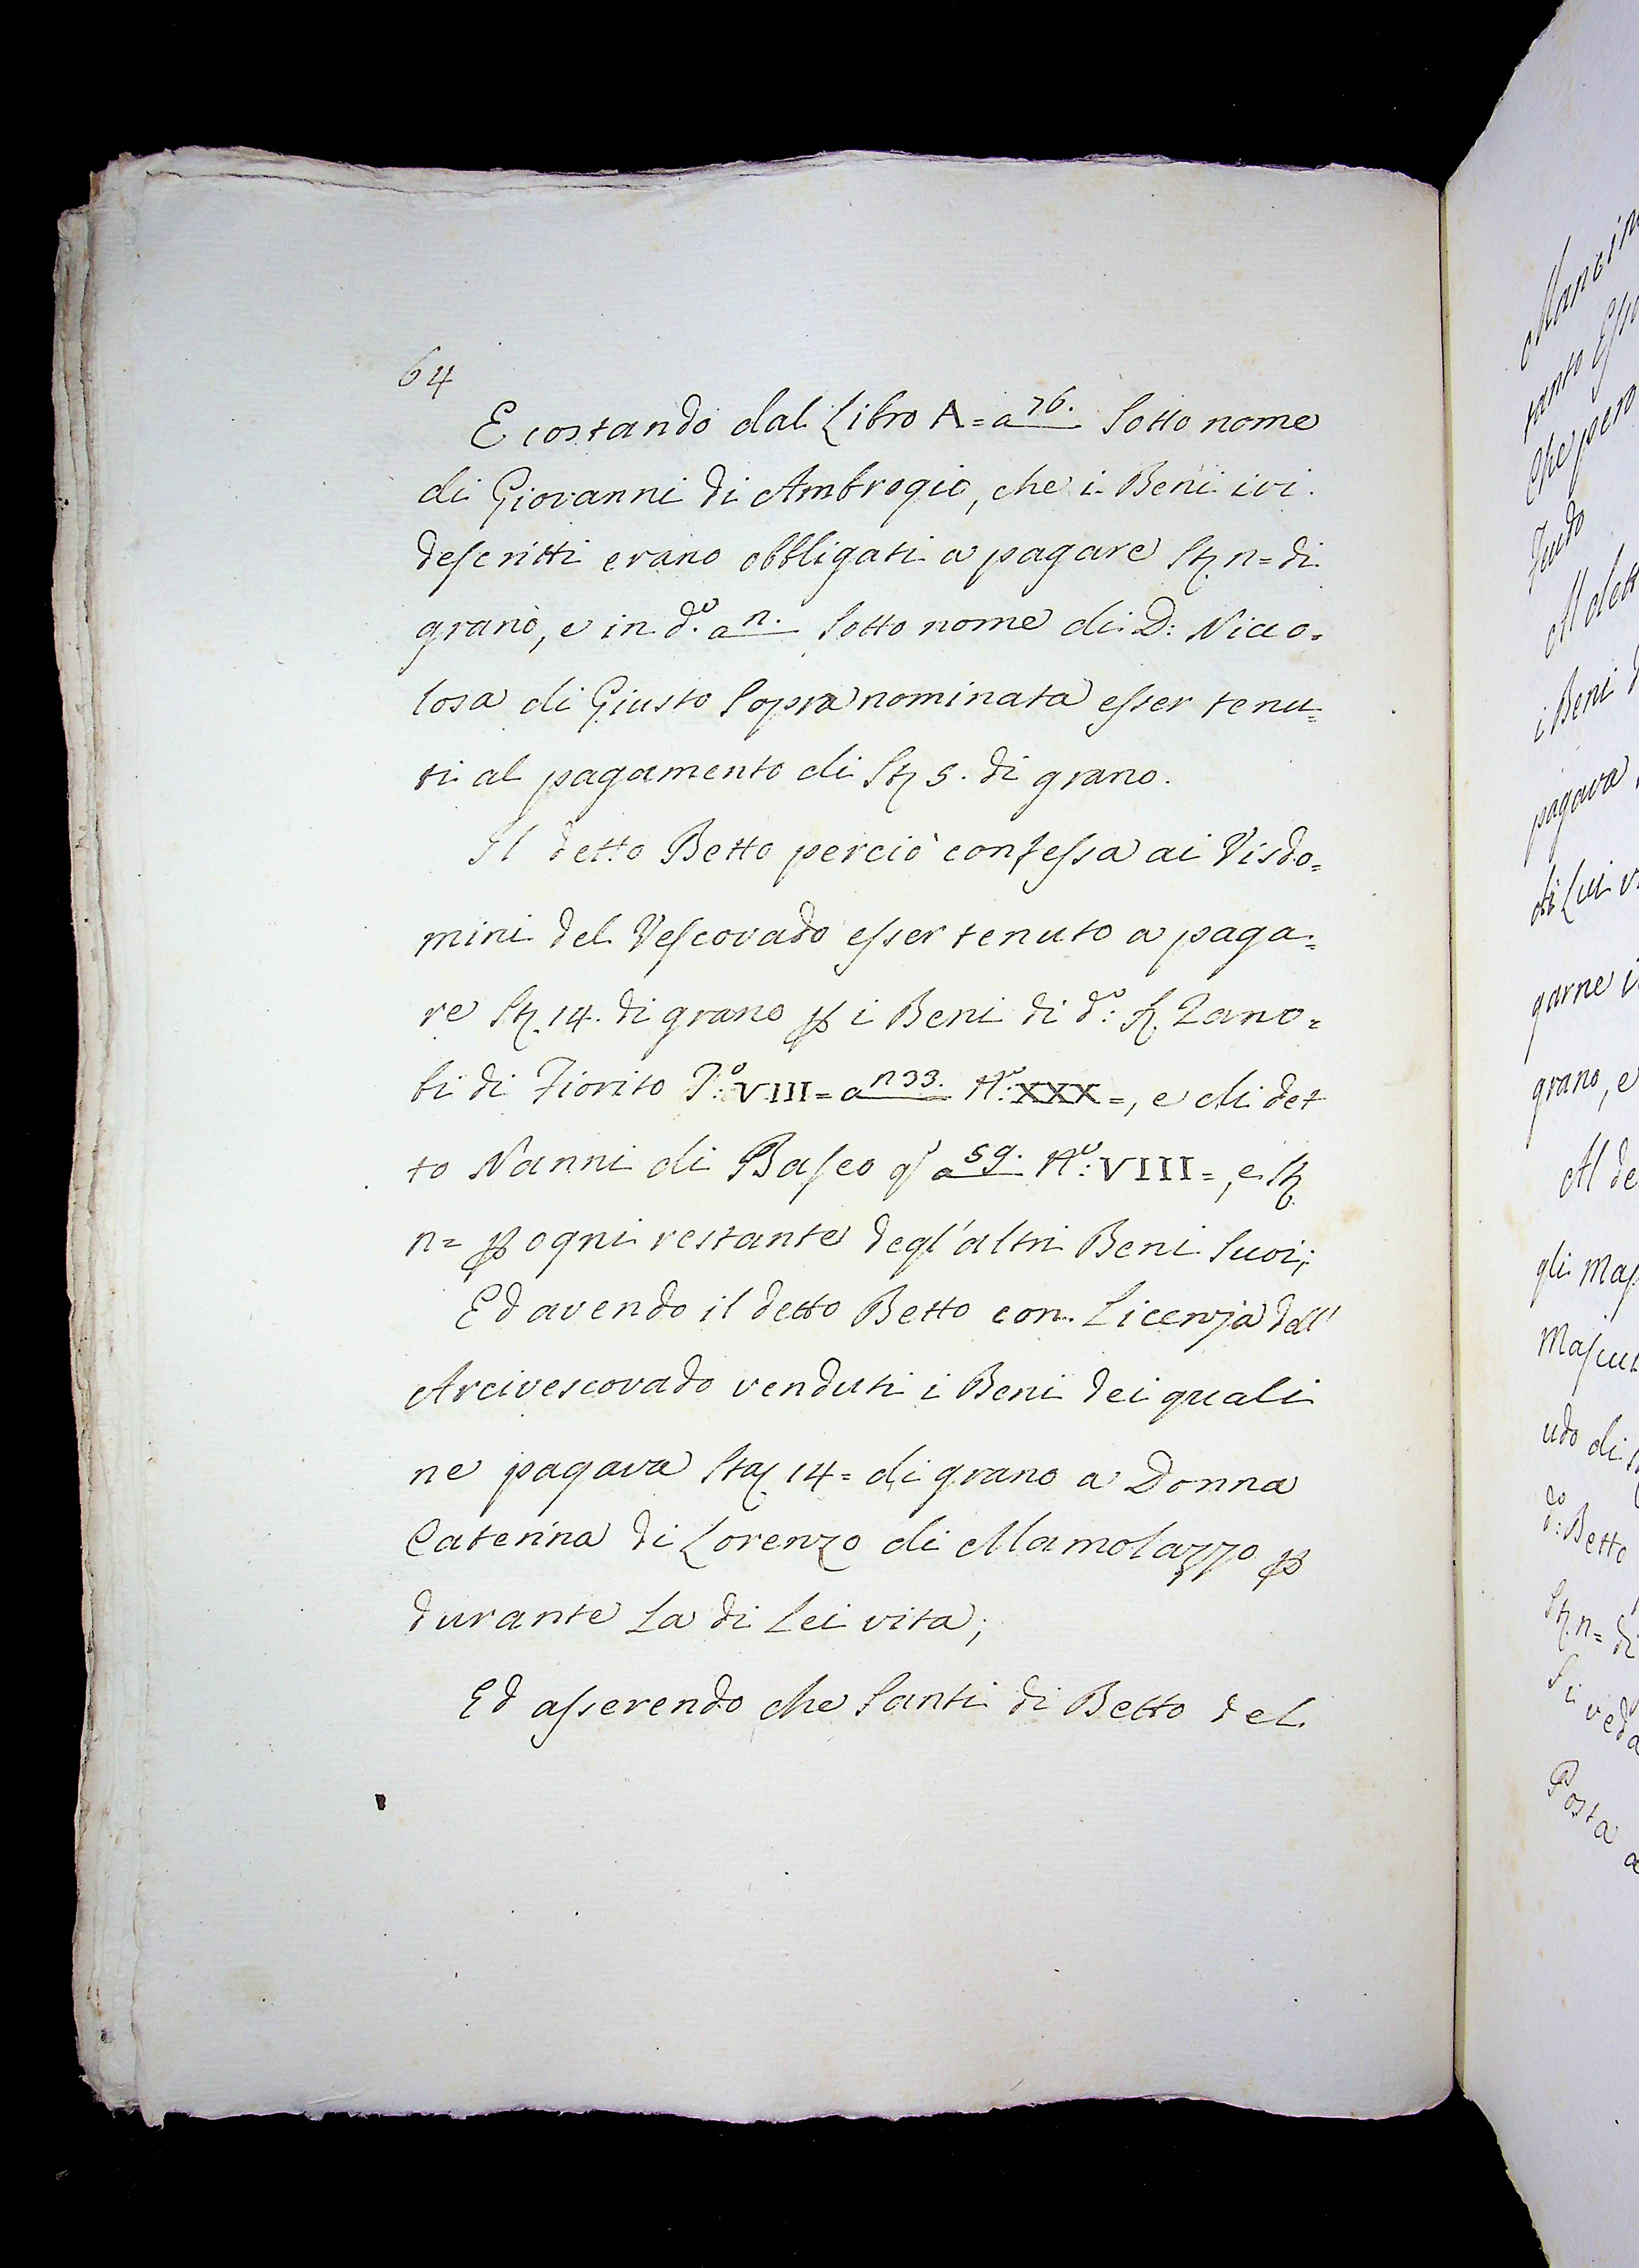 64
E costando dal Libro A = a 76. Sotto nome
di Giovanni di Ambrogio, che i Beni ivi
descritti erano obbligati a pagare St. n = di
grano, e in d.º a n. Sotto nome di D: Nicco=
losa di Giusto Sopra nominata esser tenu=
ti al pagamento di St. 5. di grano.
Il detto Betto perciò confessa ai Visdo=
mini del Vescovado esser tenuto a paga=
re St. 14. di grano p i Beni di d:º S. Zano=
bi di Fiorito P:º VIII = a n33. N:º XXX =, e di det
to Nanni di Baseo q a 59. Nº: VIII =, e St.
n = p ogni restante degl'altri Beni Suoi;
Ed avendo il detto Betto con Licenza dell'
Arcivescovado venduti i Beni dei quali
ne pagava Sta. 14 = di grano a Donna
Caterina di Lorenzo di Mamolazzo p
durante La di Lei vita;
Ed asserendo che Santi di Betto del
Mancin
tanto Esse
Che però
Al dett
i Beni d
pagava
di Lui v
garne i
grano, e
Al de
gli Mas
Mascul
udo di
d:º Betto
St. n = di
Si veda
Posta a